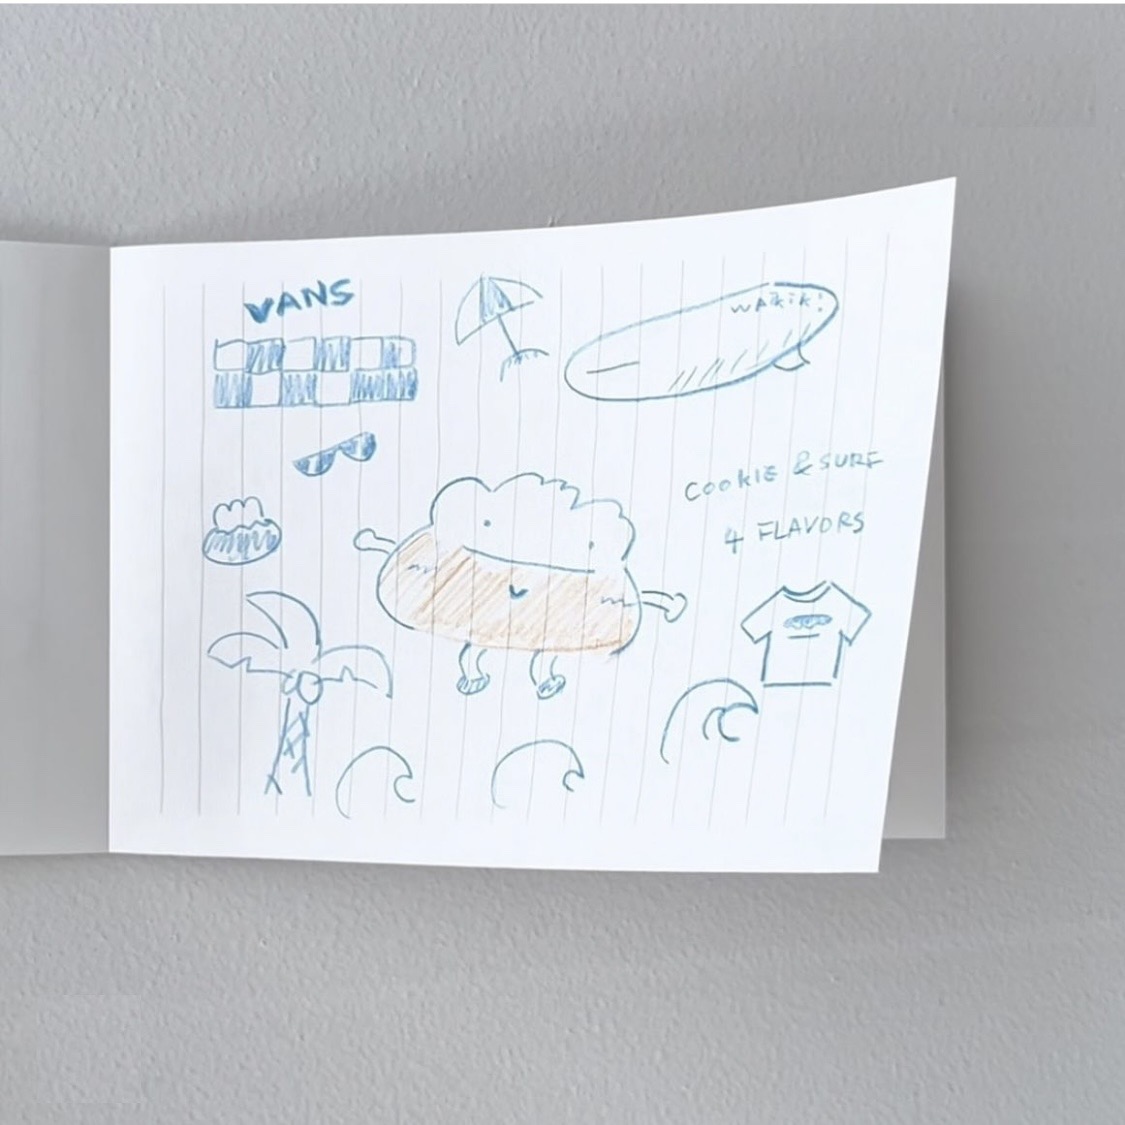 VANS
waikiki
COOKIE & SURF
4 FLAVORS